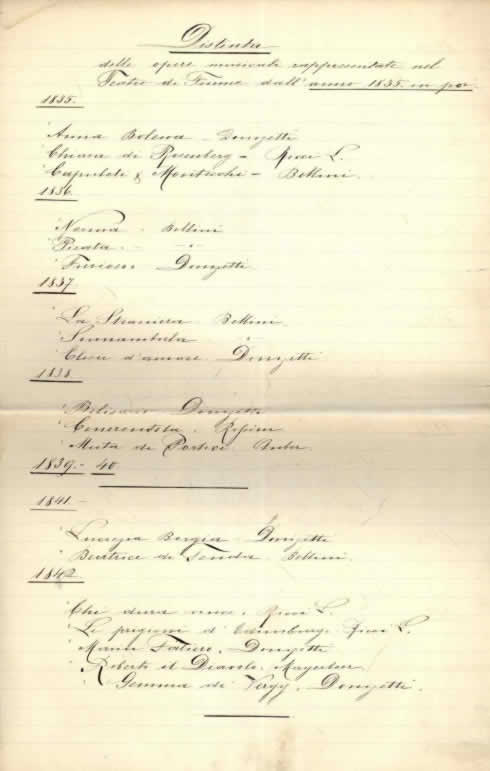 Distinta
delle opere musicali rappresentate nel
Teatro di Fiume dall'anno 1835 in poi.
1835.
Anna Bolena - Donizetti
Chiara di Rosenberg - Ricci L.
Capuleti & Montecchi - Bellini.
1836.
Norma - Bellini
Pirata - - " -
Furioso Donizetti
1837
La Straniera Bellini.
Sonnambula "
Elisir d'amore Donizetti
1838.
Belisario Donizetti
Cenerentola . Rossini
Muta di Portici Auber.
1839.- 40.
1841.-
Lucrezia Borgia - Donizetti
Beatrice di Tenda . Bellini.
1842.
Chi dura vince . Ricci L.
Le prigioni d'Edimburgo. Ricci L.
Marin Faliero. Donizetti
Roberto il Diavolo. Mayerbeer.
Gemma di Vergy. Donizetti.